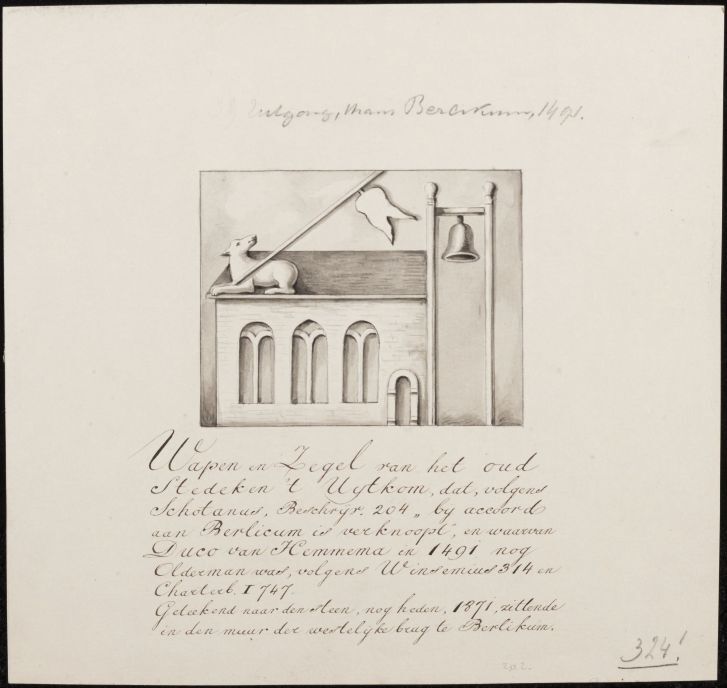 Uitgong, thans Berlikum, 1491.
Wapen en Zegel van het oud
Stedeken 't Uytkom, dat, volgens
Schotanus, Beschryv. 204 „ by accoord
aan Berlicum is verknoopt", en waarvan
Duco van Hemmema in 1491 nog
Olderman was, volgens Winsemius 314 en
Charterb. I 747.
Geteekend naar den steen, nog heden, 1871, zittende
in den muur der westelyke brug te Berlikum.
324!